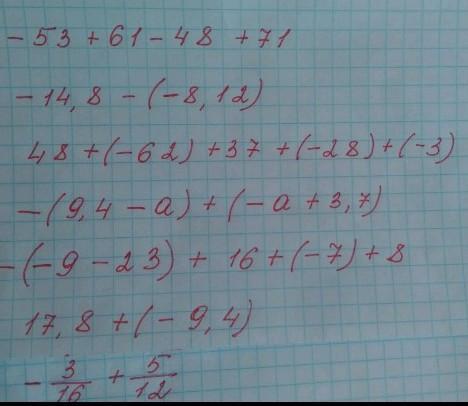 - 53 + 61 - 48 + 71
- 14,8 - (-8,12)
48 + (-62) + 37 + (-28) + (-3)
- (9,4 - a) + (-a + 3,7)
- (-9 - 23) + 16 + (-7) + 8
17,8 + (-9,4)
- 3/16 + 5/12